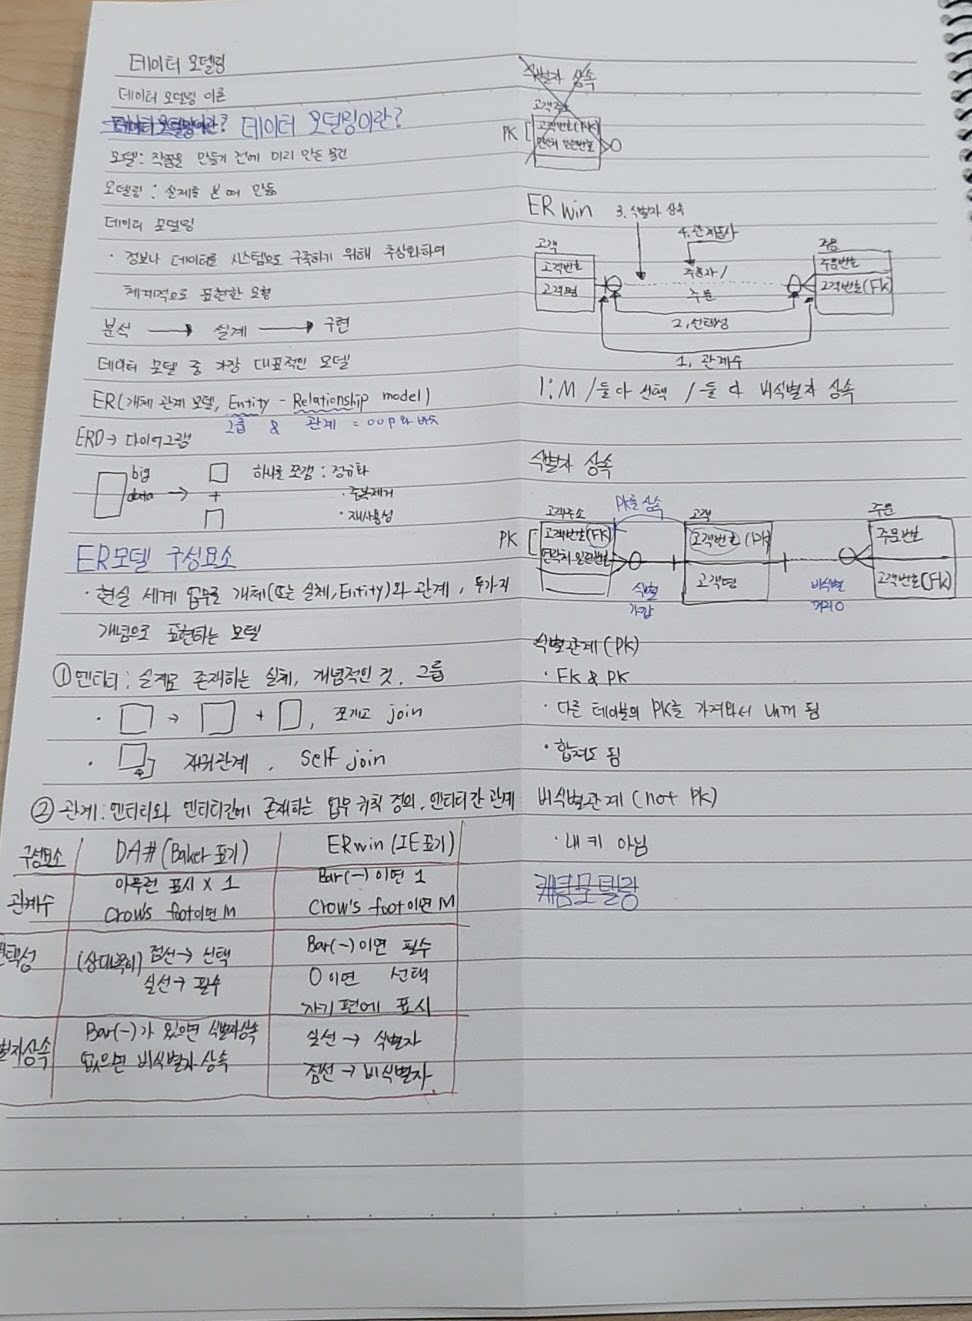 데이터 모델링
데이터 모델링 이론
데이터 모델링이란? 데이터 모델링이란?
모델: 작품을 만들기 전에 미리 만든 물건
모델링: 실제를 본 떠 만듦
데이터 모델링
· 정보나 데이터를 시스템으로 구축하기 위해 추상화하여
체계적으로 표현한 모형
분석 → 설계 → 구현
데이터 모델 중 가장 대표적인 모델
ER(개체 관계 모델, Entity - Relationship model)
그룹 & 관계 = OOP와 비슷
ERD → 다이어그램
big data → + 하나를 쪼갬: 정규화
· 중복제거
· 재사용성
ER모델 구성요소
· 현실 세계 업무를 개체(또는 실체, Entity)와 관계, 두가지
개념으로 표현하는 모델
① 엔티티: 실제로 존재하는 실체, 개념적인 것, 그룹
· → + , 쪼개고 join
· 재귀관계, Self join
② 관계: 엔티티와 엔티티간에 존재하는 업무 규칙 정의, 엔티티간 관계
구성요소 DA# (Baker 표기) ERwin (IE표기)
관계수 아무런 표시 X 1 Bar(-)이면 1
Crow's foot이면 M Crow's foot이면 M
선택성 (상대쪽이) 점선→ 선택 Bar(-)이면 필수
실선→ 필수 O이면 선택
자기편에 표시
별자상속 Bar(-)가 있으면 식별자상속 실선 → 식별자
없으면 비식별자 상속 점선 → 비식별자
식별자 상속
고객주소
PK [ 고객번호(FK)
연락처 일련번호
ERwin 3. 식별자 상속
4. 관계동사
고객 주문
고객번호 주문번호
고객명 주문자/ 고객번호(FK)
주문
2, 선택성
1, 관계수
1:M / 둘 다 선택 / 둘 다 비식별자 상속
식별자 상속
PK를 상속
고객주소 고객 주문
PK [ 고객번호(FK) 고객번호 (PK) 주문번호
연락처 일련번호
고객명 고객번호(FK)
식별 비식별
식별관계(PK)
· FK & PK
· 다른 테이블의 PK를 가져와서 내꺼 됨
· 합쳐도 됨
비식별관계 (not PK)
· 내 키 아님